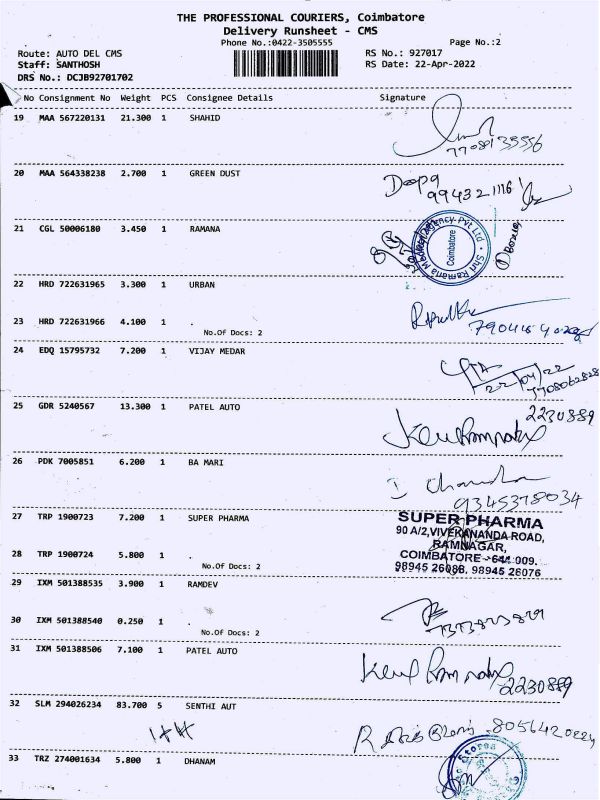 THE PROFESSIONAL COURIERS, Coimbatore
Delivery Runsheet - CMS
Phone No.:0422-3505555
Page No.:2
Route: AUTO DEL CMS
RS No.: 927017
Staff: SANTHOSH
RS Date: 22-Apr-2022
DRS No.: DCJB92701702
No Consignment No Weight PCS Consignee Details Signature
19 MAA 567220131 21.300 1 SHAHID
7708135556
20 MAA 564338238 2.700 1 GREEN DUST
Deepa
99432 1116
21 CGL 50006180 3.450 1 RAMANA
Coimbatore
22 HRD 722631965 3.300 1 URBAN
23 HRD 722631966 4.100 1 .
No.Of Docs: 2
24 EDQ 15795732 7.200 1 VIJAY MEDAR
22/04/22
7708062828
25 GDR 5240567 13.300 1 PATEL AUTO
2230889
26 PDK 7005851 6.200 1 BA MARI
9345378034
27 TRP 1900723 7.200 1 SUPER PHARMA
SUPER PHARMA
90 A/2,VIVEKANANDA ROAD,
RAMNAGAR,
COIMBATORE - 641 009.
98945 26086. 98945 26076
28 TRP 1900724 5.800 1 .
No.Of Docs: 2
29 IXM 501388535 3.900 1 RAMDEV
30 IXM 501388540 0.250 1 .
No.Of Docs: 2
31 IXM 501388506 7.100 1 PATEL AUTO
2230889
32 SLM 294026234 83.700 5 SENTHI AUT
33 TRZ 274001634 5.800 1 DHANAM
Stores